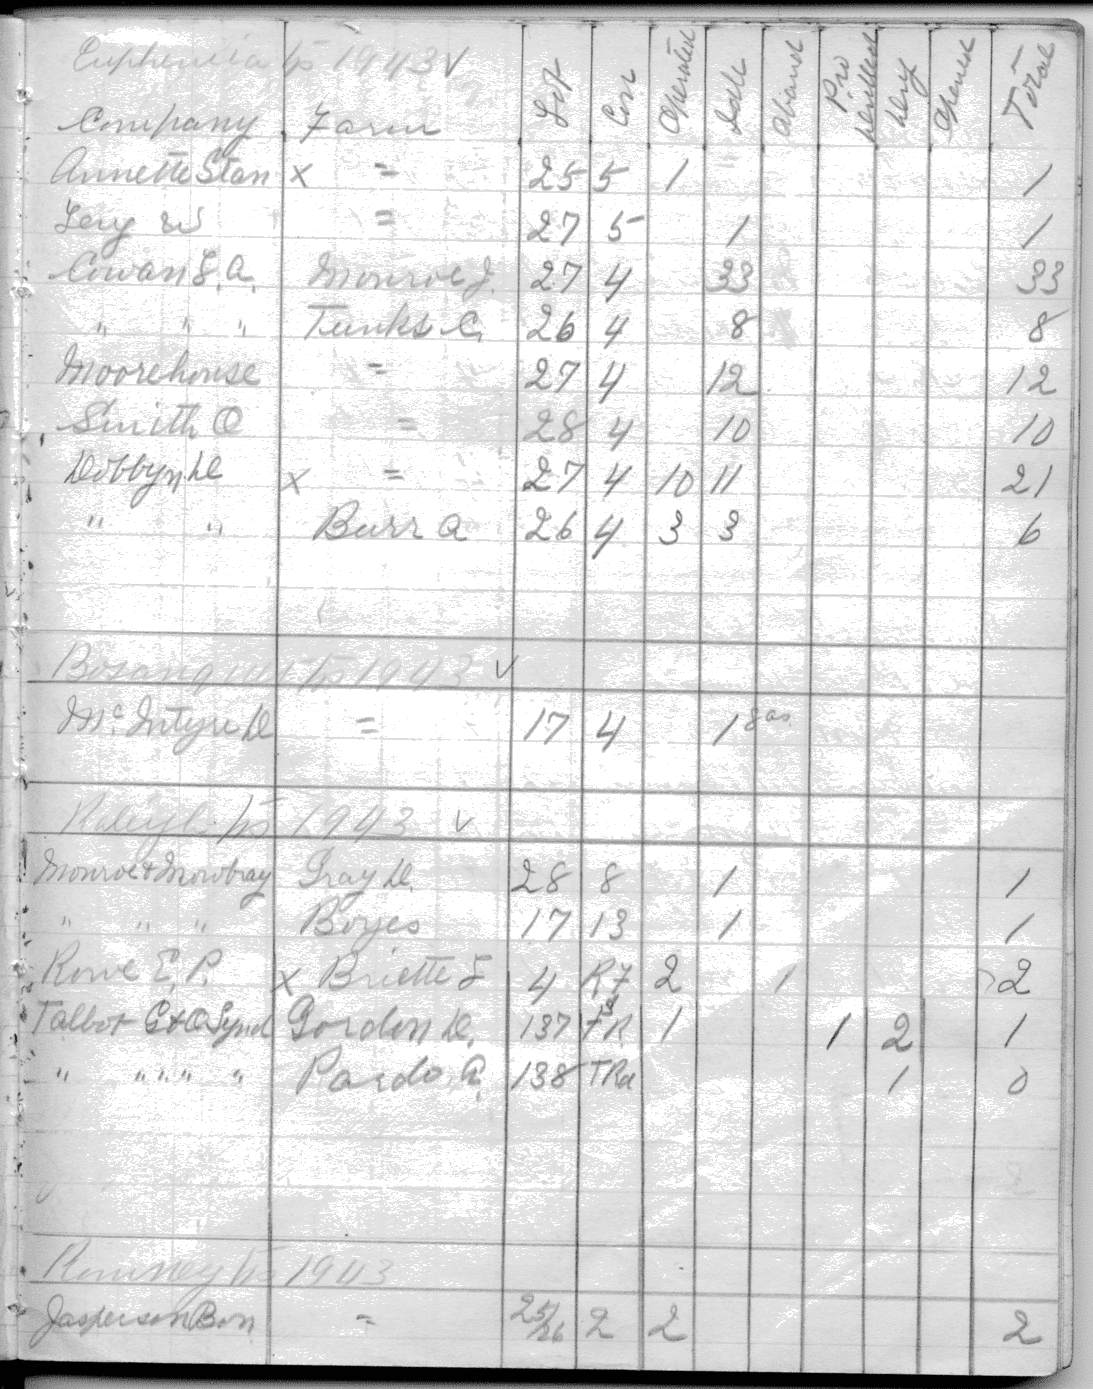 Euphemia tp 1943 ✓
Company Farm Lot Con Operated Idle Aband Pro Drilled Dry Opened Total
Annette Stan x = 25 5 1 1
27 5 1 1
Cowan L. A. Monroe J. 27 4 33 33
" " " Tunks C. 26 4 8 8
Moorehouse = 27 4 12 12
Smith O = 28 4 10 10
Dobbyn D x = 27 4 10 11 21
" " Burr A 26 4 3 3 6
Bosanquet tp 1943 ✓
McIntyre D = 17 4 1 gas
Raleigh tp 1943 ✓
Monroe & Mowbray Gray D. 28 8 1 1
" " " Boyes 17 13 1 1
Rowe E. P. x Briette F 4 R7 2 1 2
Talbot G & O Synd Gordon D. 137 1 1 2 1
" " " " " Pardo 138 T Rd 1 0
Romney tp 1943
Jasperson Bon = 25/26 2 2 2